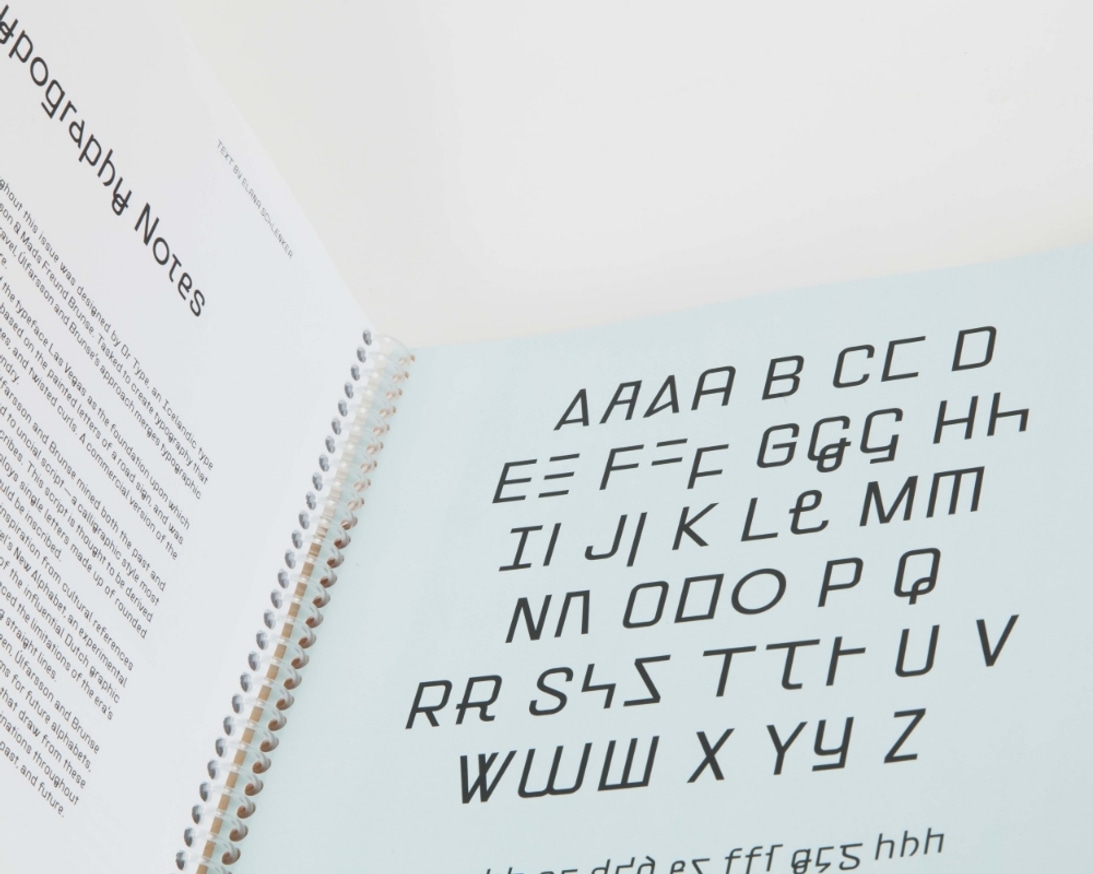 Typography Notes
TEXT BY ELANA SCHLENKER
this issue was designed by Or Type, an Icelandic type
& Mads Freund Brunse. Tasked to create typography that
Úlfarsson and Brunse's approach merges typographic
the typeface Las Vegas as the foundation upon which
based on the painted letters of a road sign, and was
and twisted curls. A commercial version of the
and Brunse mined both the past and
to uncial script—a calligraphic style most
This script is thought to be derived
single letters made up of rounded
be inscribed.
inspiration from cultural references
New Alphabet, an experimental
of the influential Dutch graphic
the limitations of the era's
straight lines.
Úlfarsson and Brunse
for future alphabets,
that draw from these
throughout
past, and future.
A A A A B C C D
E E F F F G G G H H
I I J J K L L M M
N N O O O P Q
R R S S S T T T U V
W W W X Y Y Z
d d d e s f f f g g g h h h